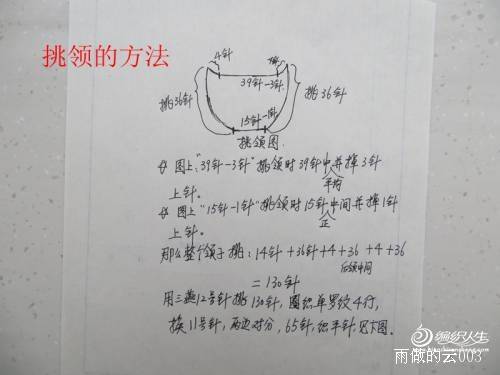 挑领的方法
4针
4针
39针-3针
挑36针
挑36针
15针-1针
挑领图
图上"39针-3针"挑领时39针中并掉3针
平均
上针。
图上"15针-1针"挑领时15针中间并掉1针
正
上针。
那么整个领子挑:14针+36针+4+36+4+36
后领中间
=130针
用三燕12号针挑130针,圈织单罗纹4行,
换11号针,两边对分,65针,织平针,见下图。
编织人生
雨做的云003